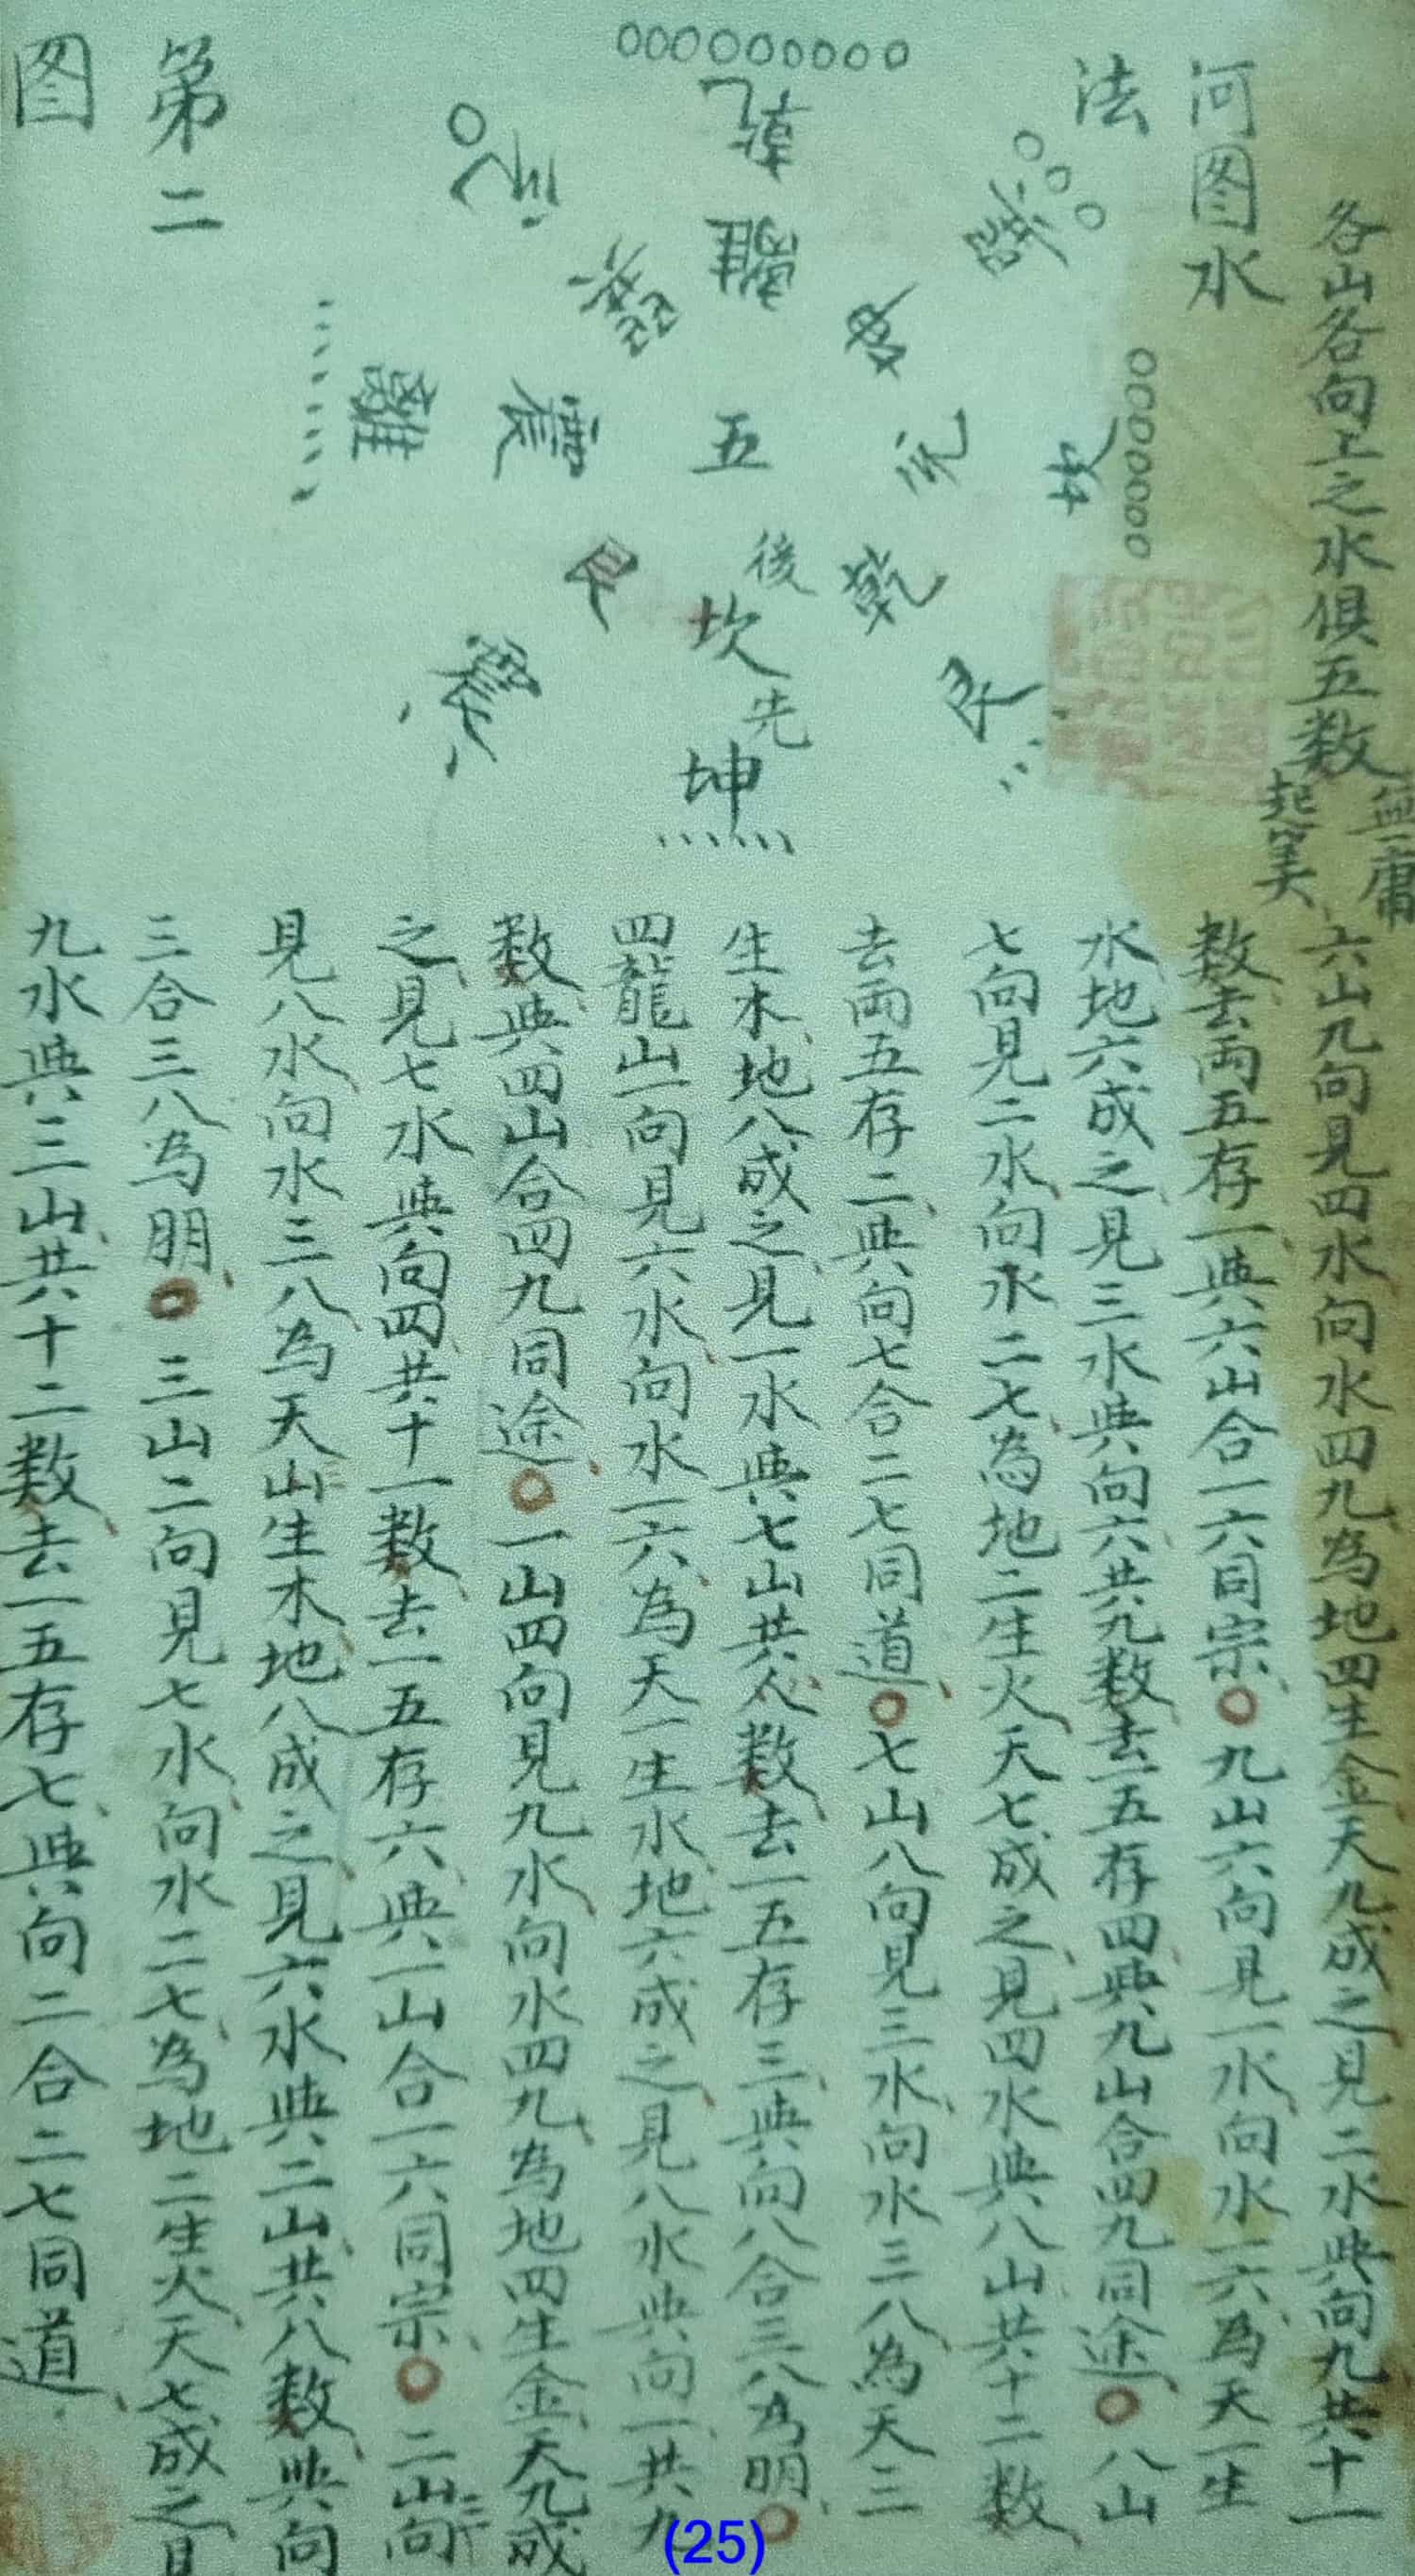 各山各向上之水俱五数
無庸
起筭
河图水
法
第二
图
九
乾
離
兌
巽
坤
巽
坤
離
震
五
兌
坎
艮
後
坎
乾
震
先
坤
艮
六山九向見四水向水四九為地四生金天九成之見二水與向九共十一
数去両五存一與六山合一六同宗○九山六向見一水向水一六為天一生
水地六成之見三水與向六共九数去一五存四與九山合四九同途○八山
七向見二水向水二七為地二生火天七成之見四水與八山共十二数
去両五存二與向七合二七同道○七山八向見三水向水三八為天三
生木地八成之見一水與七山共八数去一五存三與向八合三八為明○
四龍山一向見六水向水一六為天一生水地六成之見八水與向一共九
数與四山合四九同途○一山四向見九水向水四九為地四生金天九成
之見七水與向四共十一数去一五存六與一山合一六同宗○二山三向
見八水向水三八為天山生木地八成之見六水與二山共八数與向
三合三八為明○三山二向見七水向水二七為地二生火天七成之見
九水與三山共十二数去一五存七與向二合二七同道
(25)